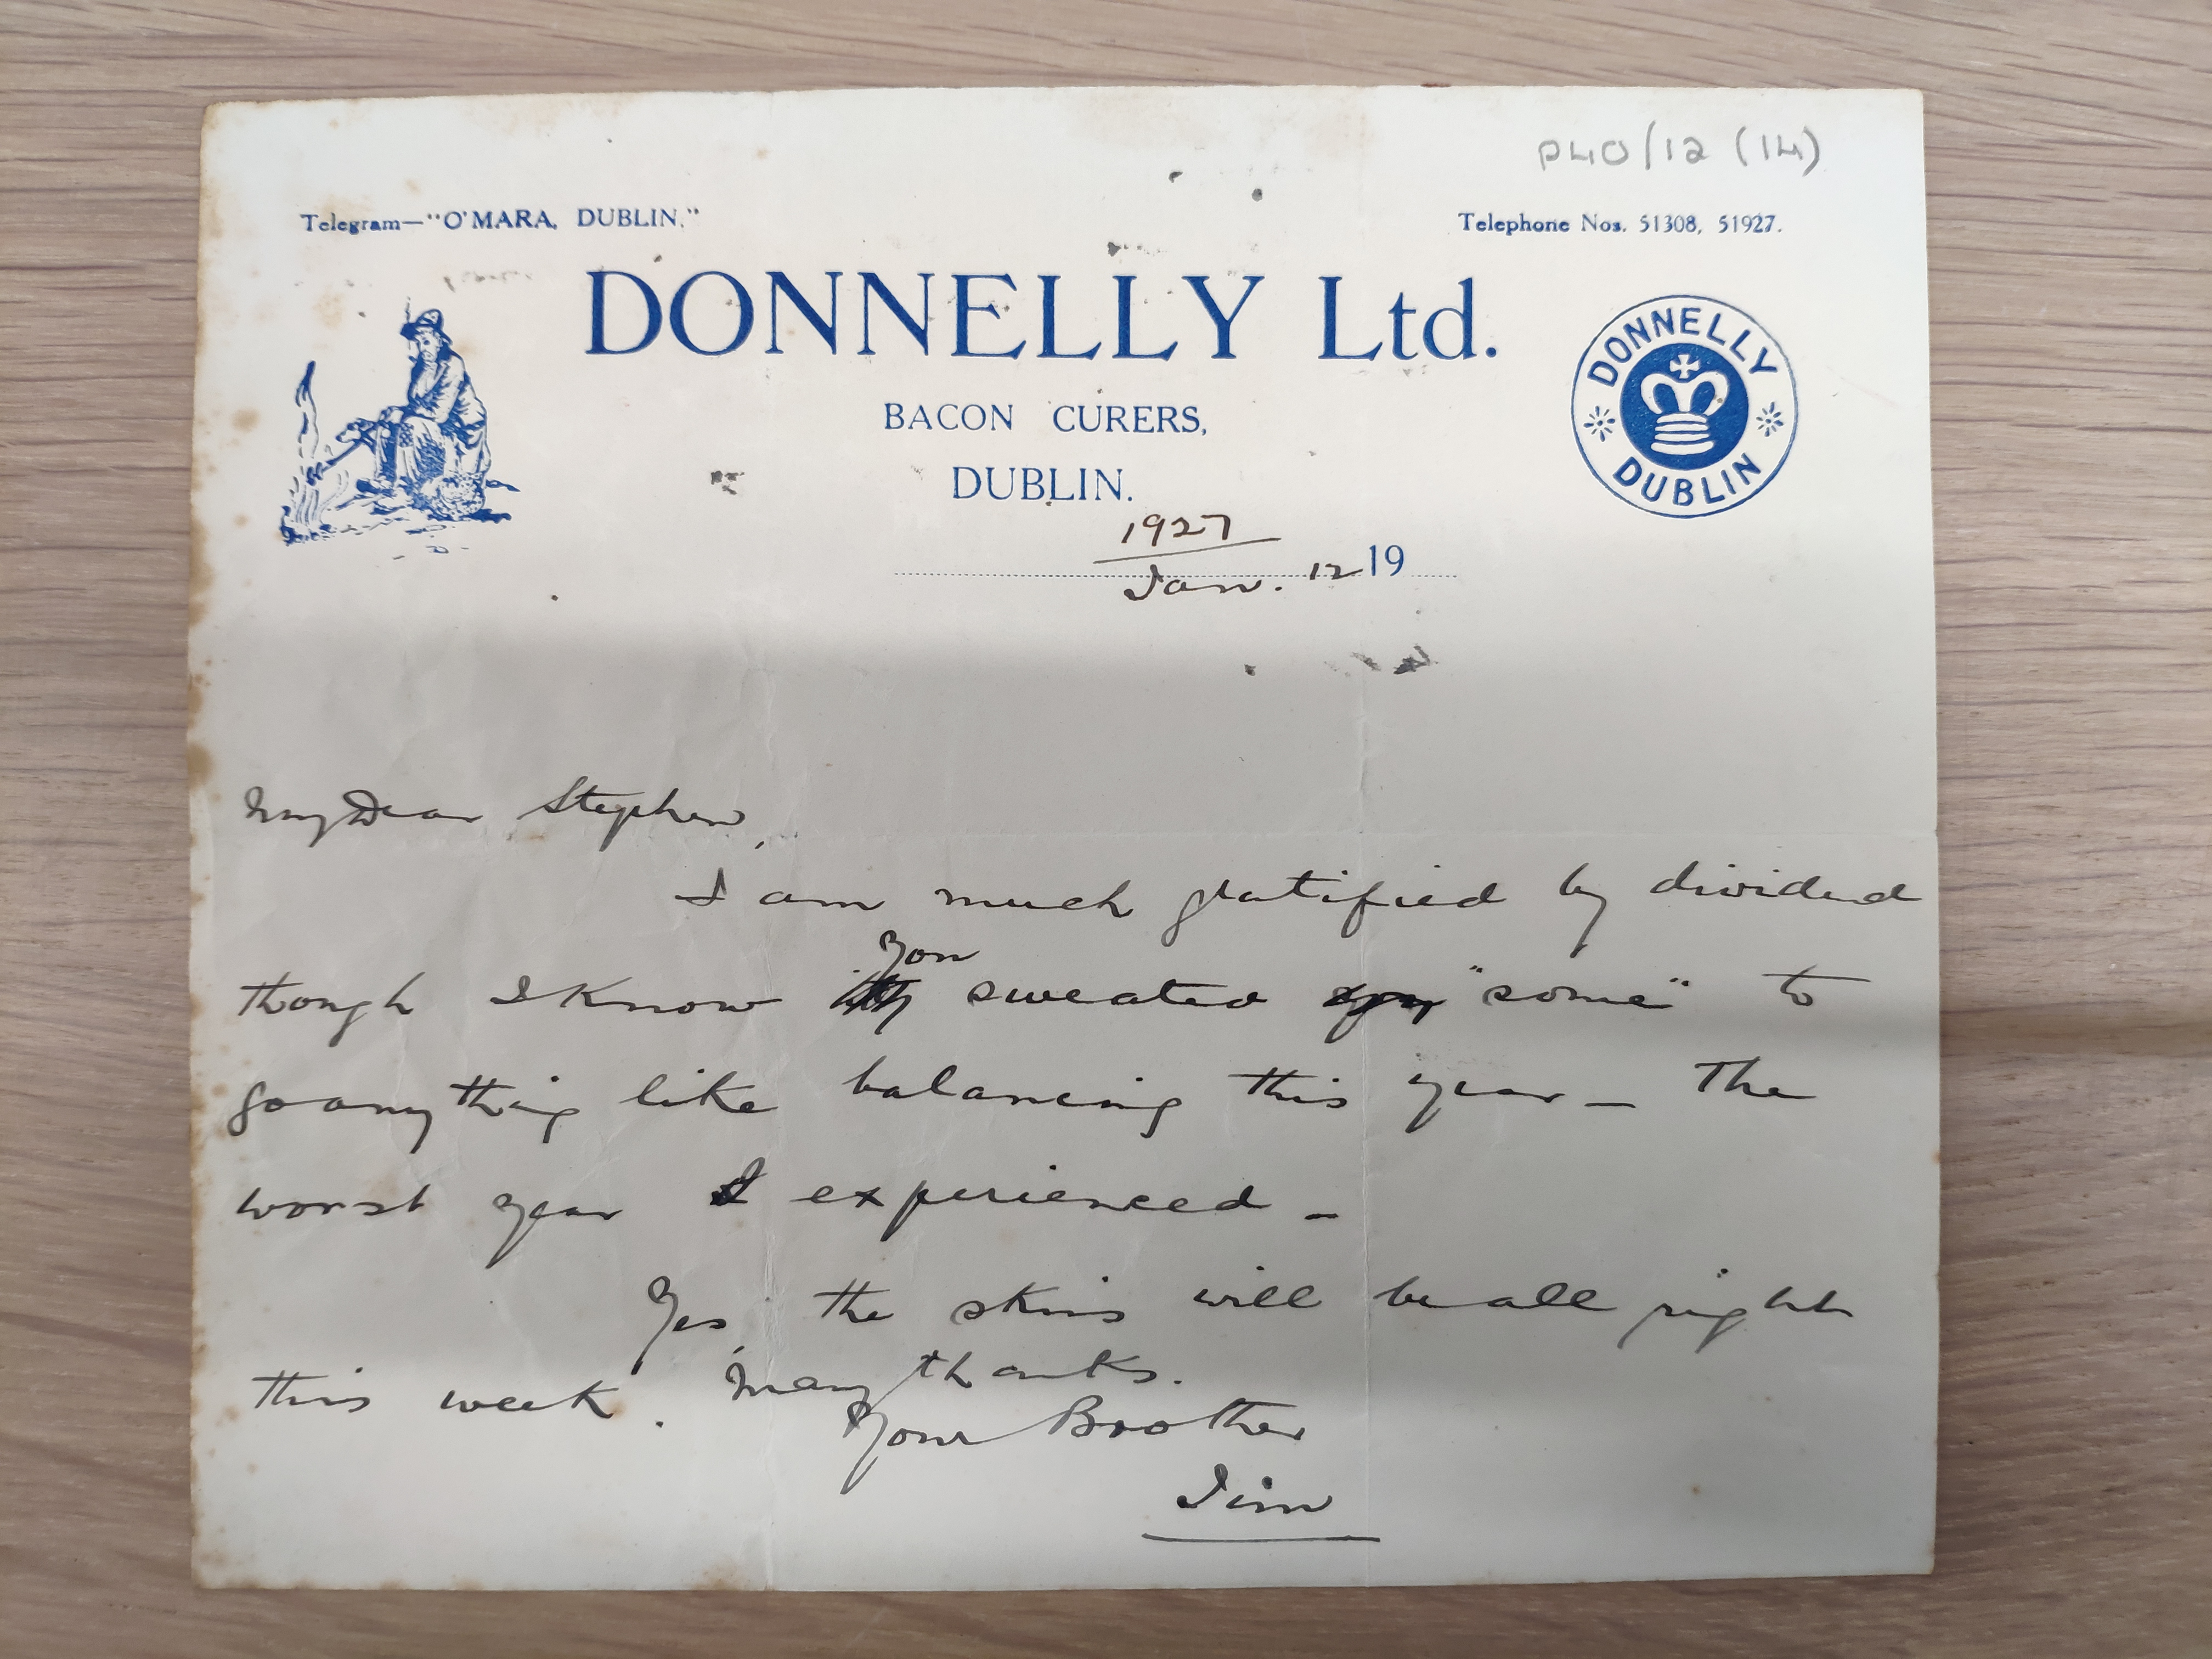 P40/12 (14)
Telegram—"O'MARA, DUBLIN."
Telephone Nos. 51308, 51927.
DONNELLY Ltd.
DONNELLY
DUBLIN
BACON CURERS,
DUBLIN.
1927
Jan. 12 19
My Dear Stephen,
I am much gratified by dividend
though I know you sweated "some" to
go anything like balancing this year – The
worst year I experienced –
Yes, the skins will be all right
this week. Many thanks.
Your Brother
Jim